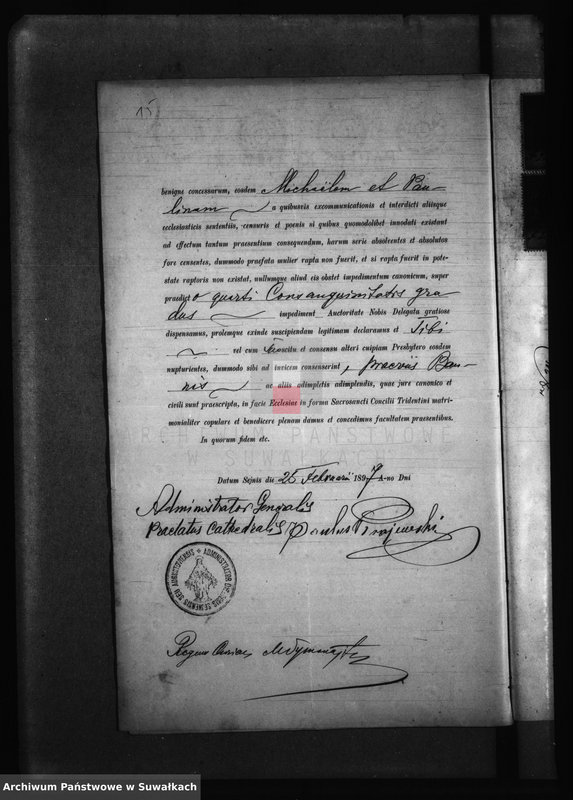 15
benigne concessarum, eosdem Michaëlem et Pau-
linam a quibusvis excommunicationis et interdicti aliisque
ecclesiasticis sententiis, censuris et poenis si quibus quomodolibet innodati existant
ad effectum tantum praesentium consequendum, harum serie absolventes et absolutos
fore censentes, dummodo praefata mulier rapta non fuerit, et si rapta fuerit in pote-
state raptoris non existat, nullumque aliud eis obstet impedimentum canonicum, super
praedicto quarti Consanguinitatis gra-
dus impediment Auctoritate Nobis Delegata gratiose
dispensamus, prolemque exinde suscipiendam legitimam declaramus et Tibi
vel cum consensu alteri cuipiam Presbytero eosdem
nupturientes, dummodo sibi ad invicem consenserint, praeviis Ban-
nis ac aliis adimpletis adimplendis, quae jure canonico et
civili sunt praescripta, in facie Ecclesiae in forma Sacrosancti Concilii Tridentini matri-
monialiter copulare et benedicere plenam damus et concedimus facultatem praesentibus.
In quorum fidem etc.
ARCHIWUM PAŃSTWOWE
W SUWAŁKACH
Datum Sejnis die 25 Februarii 1897 A-no Dni
Administrator Generalis
Praelatus Cathedralis Paulus Krajewski
Regens
Archiwum Państwowe w Suwałkach